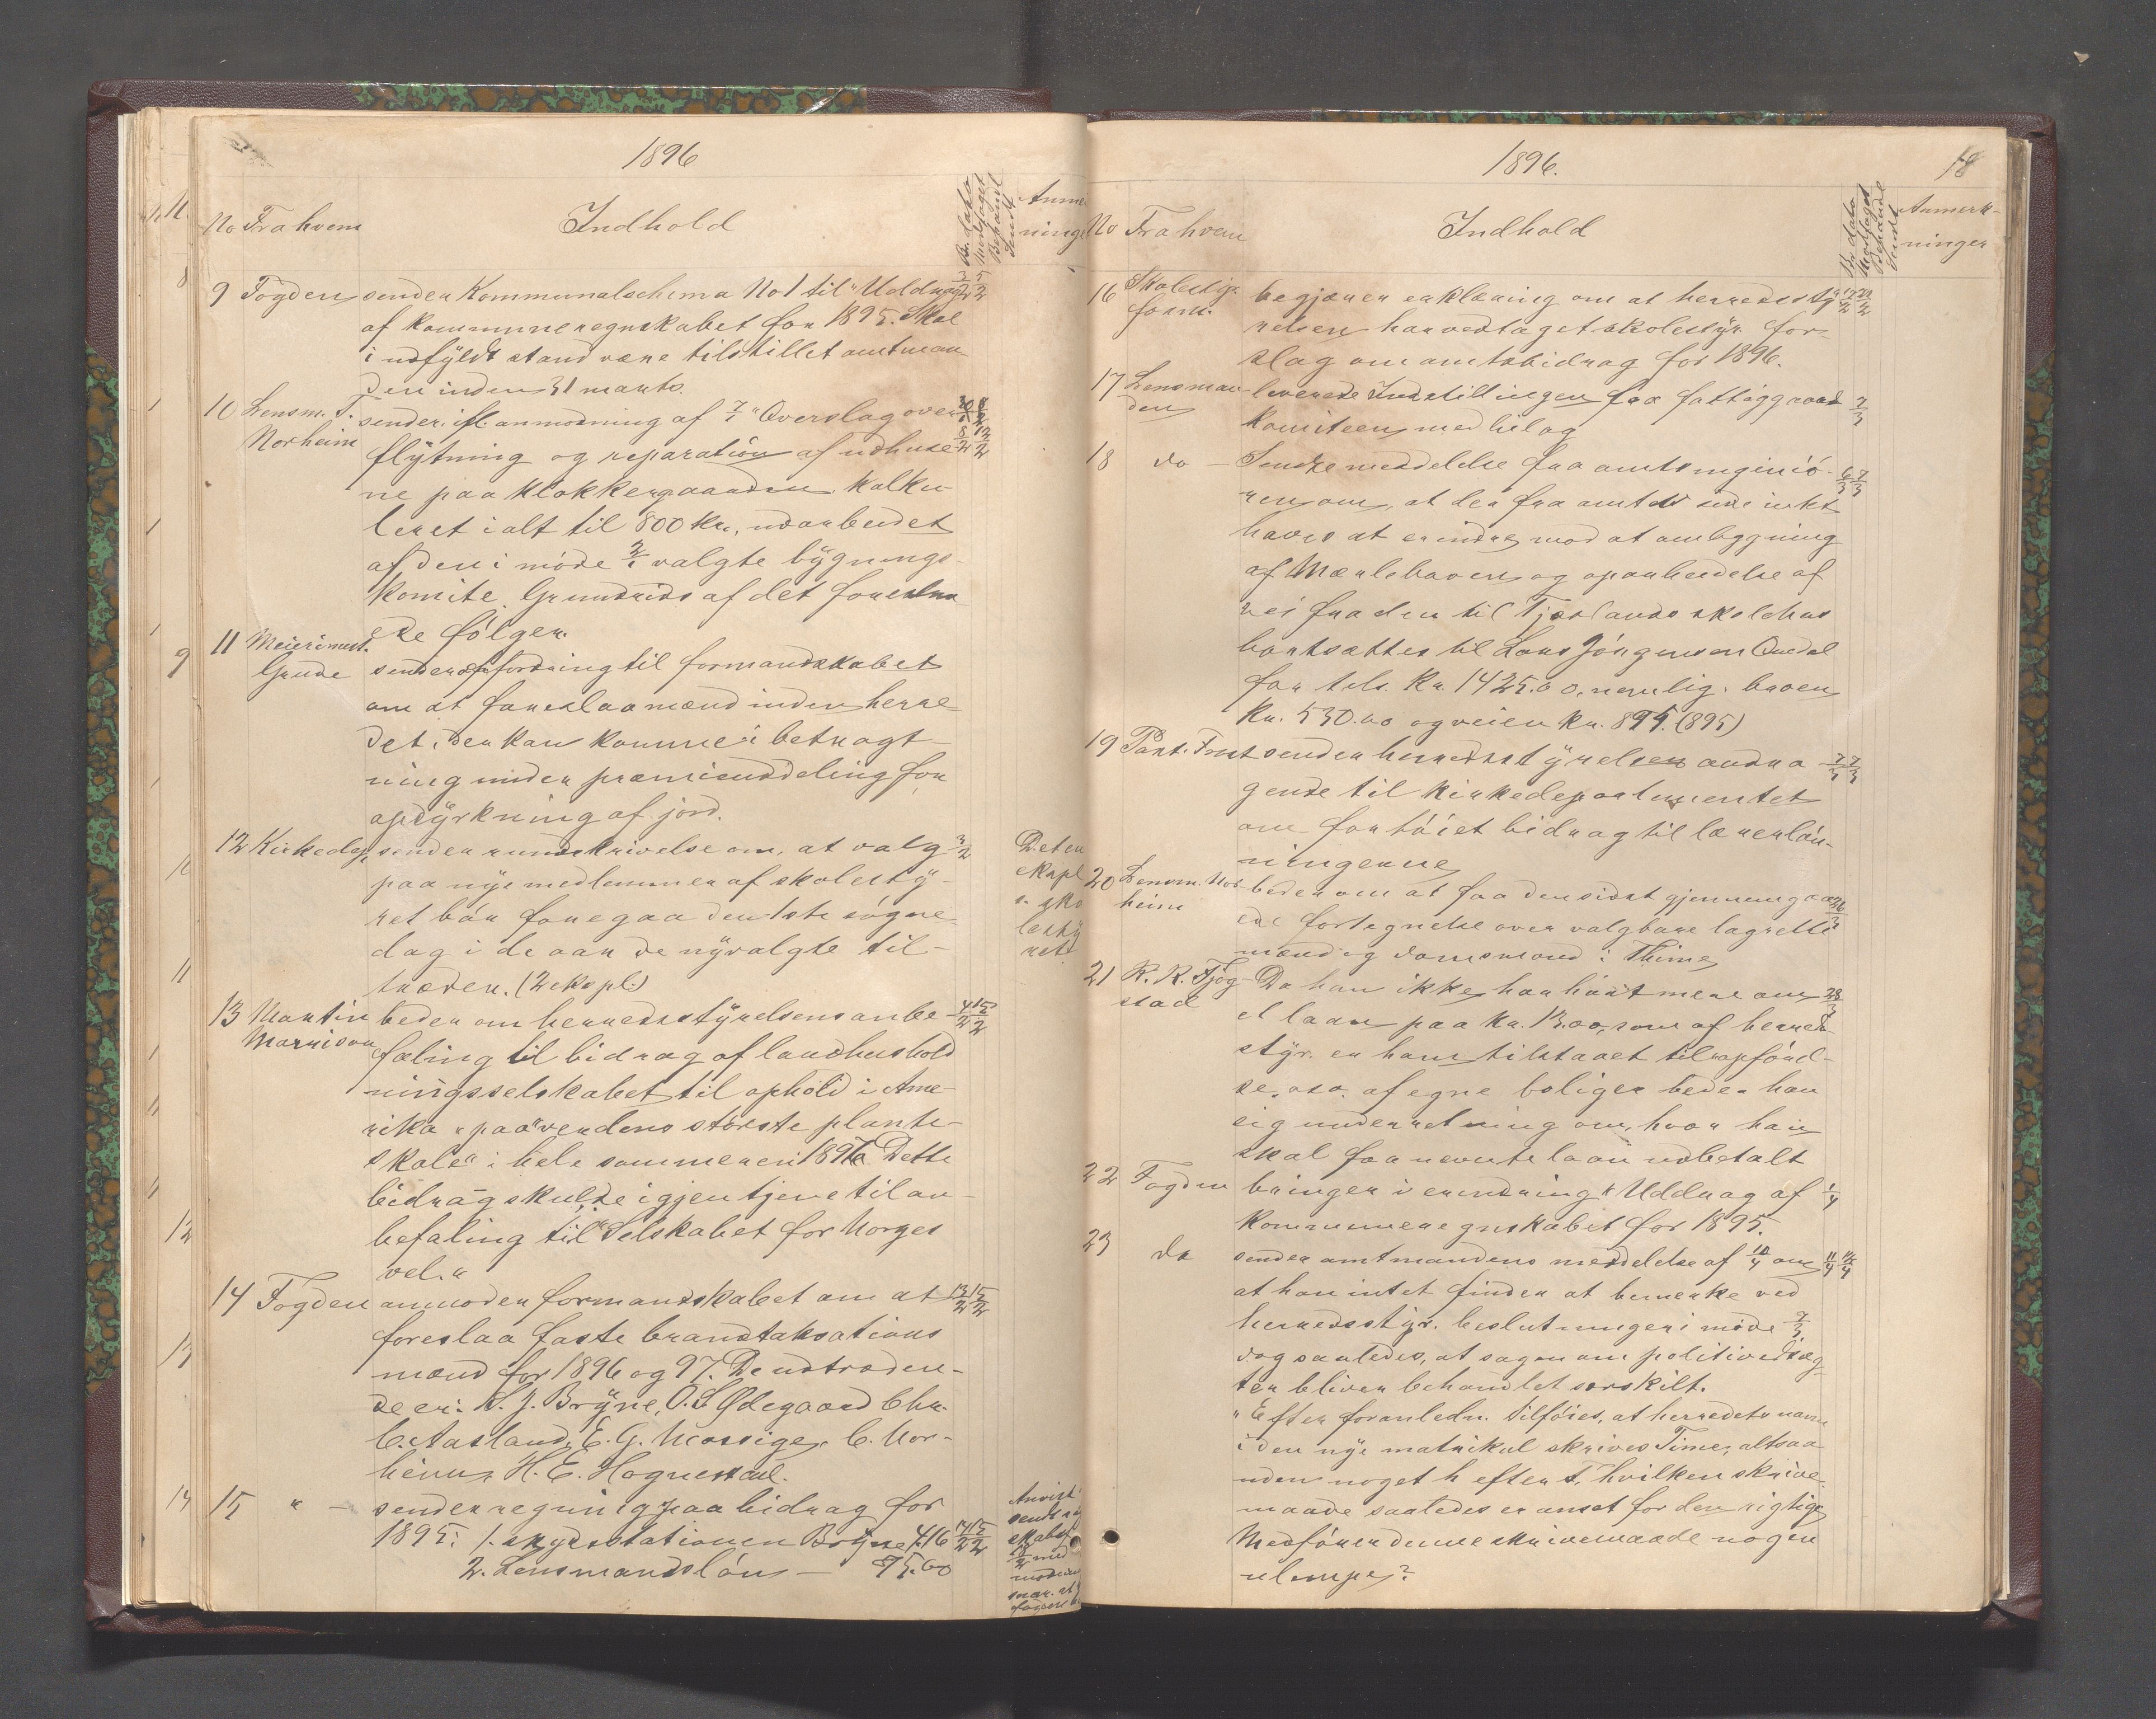 1896
No Fra hvem Indhold Br. dato Modtaget Behandl Sendt Anmerk-
ninger
9 Fogden sender Kommunalschema No 1 til "Uddrag 3/2 5/2
af kommuneregnskabet for 1895. Skal
i udfyldt stand være tilstillet amtman-
den inden 31 marts.
10 Lensm. T. sender ifl. anmodning af 7/1 "Overslag over
Norheim flytning og reparation af udhuse- 8/2 12/2
ne paa Klokkergaarden. Kalku-
leret ialt til 800 Kr., udarbeidet
af den i møde 2/1 valgte bygnings-
komite. Grundrids af det foreslaa-
ede følger.
11 Meierimest.
Grude sender opfordring til formandskabet
om at foreslaa mænd inden herre-
det, der kan komme i betragt-
ning under præmieuddeling for
opdyrkning af jord.
12 Kirkedep. sender rundskrivelse om, at valg 3/2
paa nye medlemmer af skolesty-
ret bør foregaa den 1ste søgne-
dag i de aar de nyvalgte til-
træder. (2 ekspl.)
Det en
ekspl
s. sko
lesty
ret
13 Martin beder om herredsstyrelsens anbe- 4/2 15/2
Morrison faling til bidrag af landhushold-
ningsselskabet til ophold i Ame-
rika "paa verdens største plante-
skole" i hele sommeren 1896. Dette
bidrag skulde igjen tjene til an-
befaling til "Selskabet for Norges
vel."
14 Fogden anmoder formandskabet om at 13/2 15/2
foreslaa faste brandtaksations
mænd for 1896 og 97. De udtræden-
de er: K. J. Bryne, O. S. Ødegaard Chr.
C. Aasland, E. G. Mossige, C. Nor-
heim, H. E. Hognestad.
15 " — sender regning paa bidrag for
1895: 1. skydsstationen Bryne 4.16 14/2 15/2
2. Lensmandsløn — 75.00
Anvist
sendt
med
1896. 18
No Fra hvem Indhold Br. dato Modtaget Behandl Sendt Anmerk-
ninger
16 Skolestyr. begjærer erklæring om at herredssty-
form. relsen har vedtaget skolestyr. for-
slag om amtsbidrag for 1896.
17 Lensman- leverede Indstillingen fra fattiggaard 7/3
den Komiteen med bilag
18 do — Sendte meddelelse fra amtsingeniø- 6/3 7/3
ren om, at der fra amtets side intet
haves at erindre mod at ombygning
af Mærlebroen og oparbeidelse af
vei fra den til Tjøtlands skolehus
bortsættes til Lars Jørgensen Qvedal
for tils. Kr. 1425.00, nemlig: broen
Kr. 530.00 og veien Kr. 895. (895)
19 Past. Frost sender herredsstyrelsens andra- 7/3 7/3
gende til Kirkedepartementet
om forhøiet bidrag til lærerløn-
ningerne
20 Lensm. Nor- beder om at faa den sidst gjennemgaa-
heim ede fortegnelse over valgbare lagrette
mænd og domsmænd i Thime
21 R. R. Tjøg- Da han ikke har hørt mere om 28/3
stad et laan paa Kr. 1300, som af herreds-
styr. er ham tilstaaet til opfø-
se, oso. af egne boliger beder han
sig underretning om, hvor han
skal faa nevnte laan udbetalt
22 Fogden bringer i erindring "Uddrag af 1/4
Kommuneregnskabet for 1895.
23 do sender amtmandens meddelse af 10/4 om 11/4 14/4
at han intet finder at bemerke ved
herredsstyr. beslutninger i møde 7/3,
dog saaledes, at sagen om politivedtæg-
ten bliver behandlet særskilt.
"Efter foranledn. tilføies, at herredets navn
i den nye matrikul skrives Time, altsaa
uden noget h efter T, hvilken skrive-
maade saaledes er anset for den rigtige
Medfører denne skrivemaade nogen
ulempe?